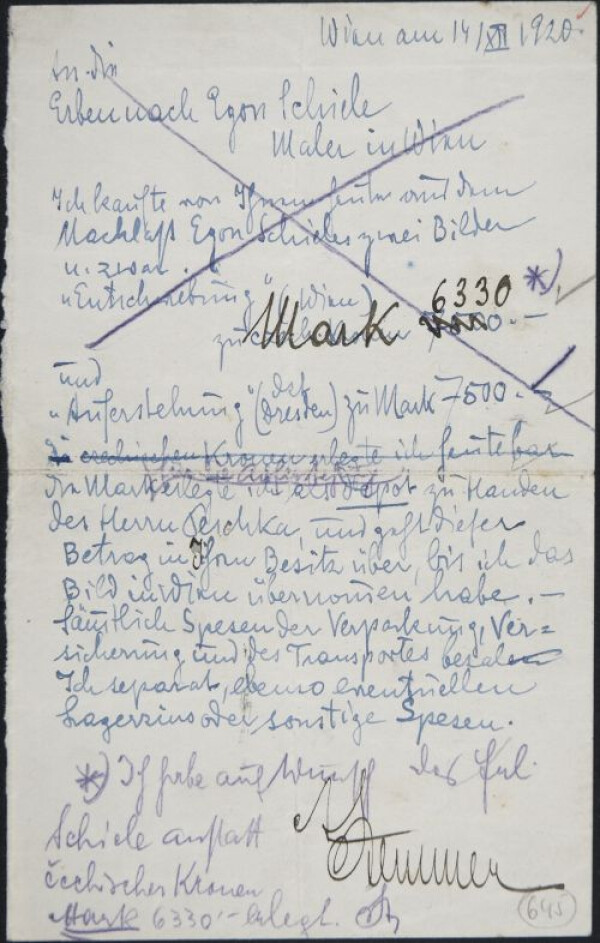 Wien am 14/XII 1920.
An die
Erben nach Egon Schiele
Maler in Wien
Ich kaufte von Ihnen heute aus dem
Nachlaß Egon Schieles zwei Bilder
u. zwar
„Entschwebung" (Wien) 6330 *)
zu Mark
und
„Auferstehung" (dzt Dresden) zu Mark 7500.–
Kronen erlegte ich heute bar
Die Mark erlegte ich als Depot zu Handen
des Herrn Peschka, und geht dieser
Betrag in Ihren Besitz über, bis ich das
Bild in Wien übernomen habe. –
Sämtlich Spesen der Verpackung, Ver=
sicherung und des Transportes bezale
Ich separat, ebenso eventuellen
Lagerzins oder sonstige Spesen.
*) Ich habe auf Wunsch des Frl.
Schiele anstatt
čechischer Kronen
Mark 6330'– erlegt.
645